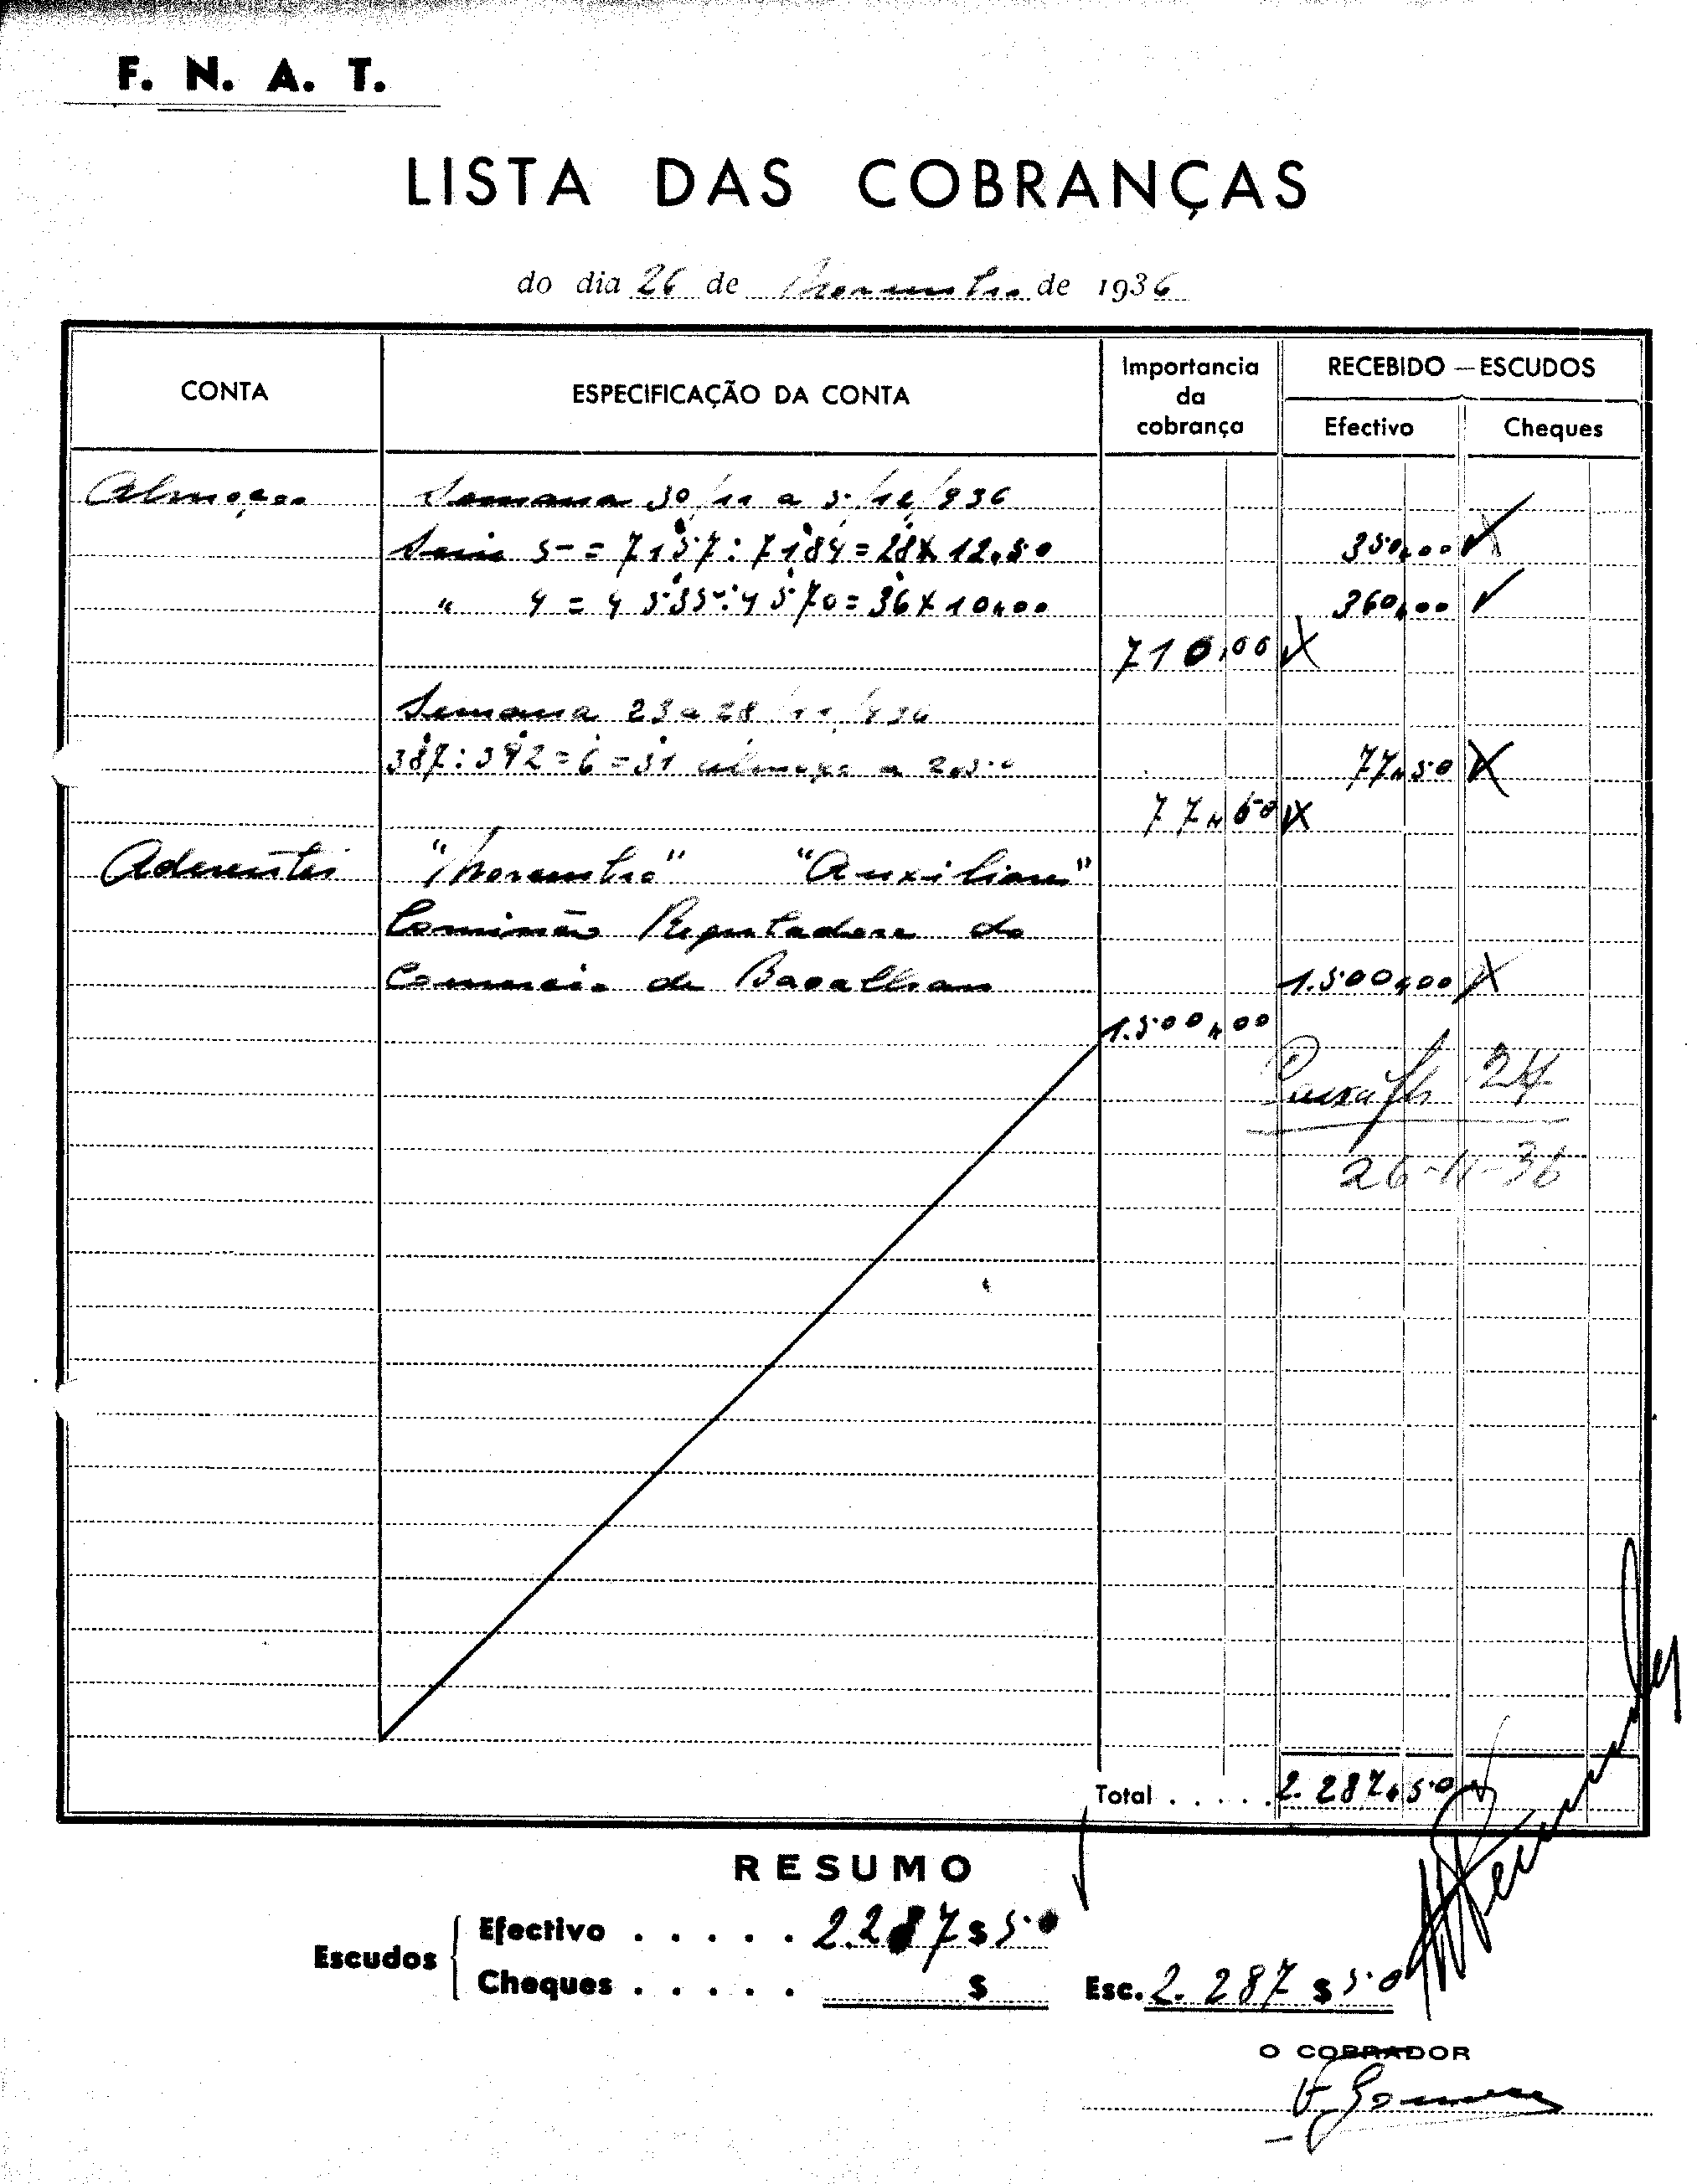 F. N. A. T.
LISTA DAS COBRANÇAS
do dia 26 de Novembro de 1936
CONTA
ESPECIFICAÇÃO DA CONTA
Importancia da cobrança
RECEBIDO — ESCUDOS
Efectivo
Cheques
Almoços Semana 30/11 a 5/12/936
Serie 5 = 7157:7184 = 28 X 12,50 350,00
" 4 = 4535:4570 = 36 X 10,00 360,00
710,00
Semana 23 a 28/11/936
387:392 = 6 = 31 almoços a 2,50 77,50
77,50
Aderentes "Novembro" "Auxiliares"
Comissão Reguladora do
Comercio de Bacalhau 1.500,00
1.500,00
24
26-11-36
Total . . . . . 2.287,50
RESUMO
Escudos
Efectivo . . . . . 2.287$50
Cheques . . . . . $
Esc. 2.287$50
O COBRADOR